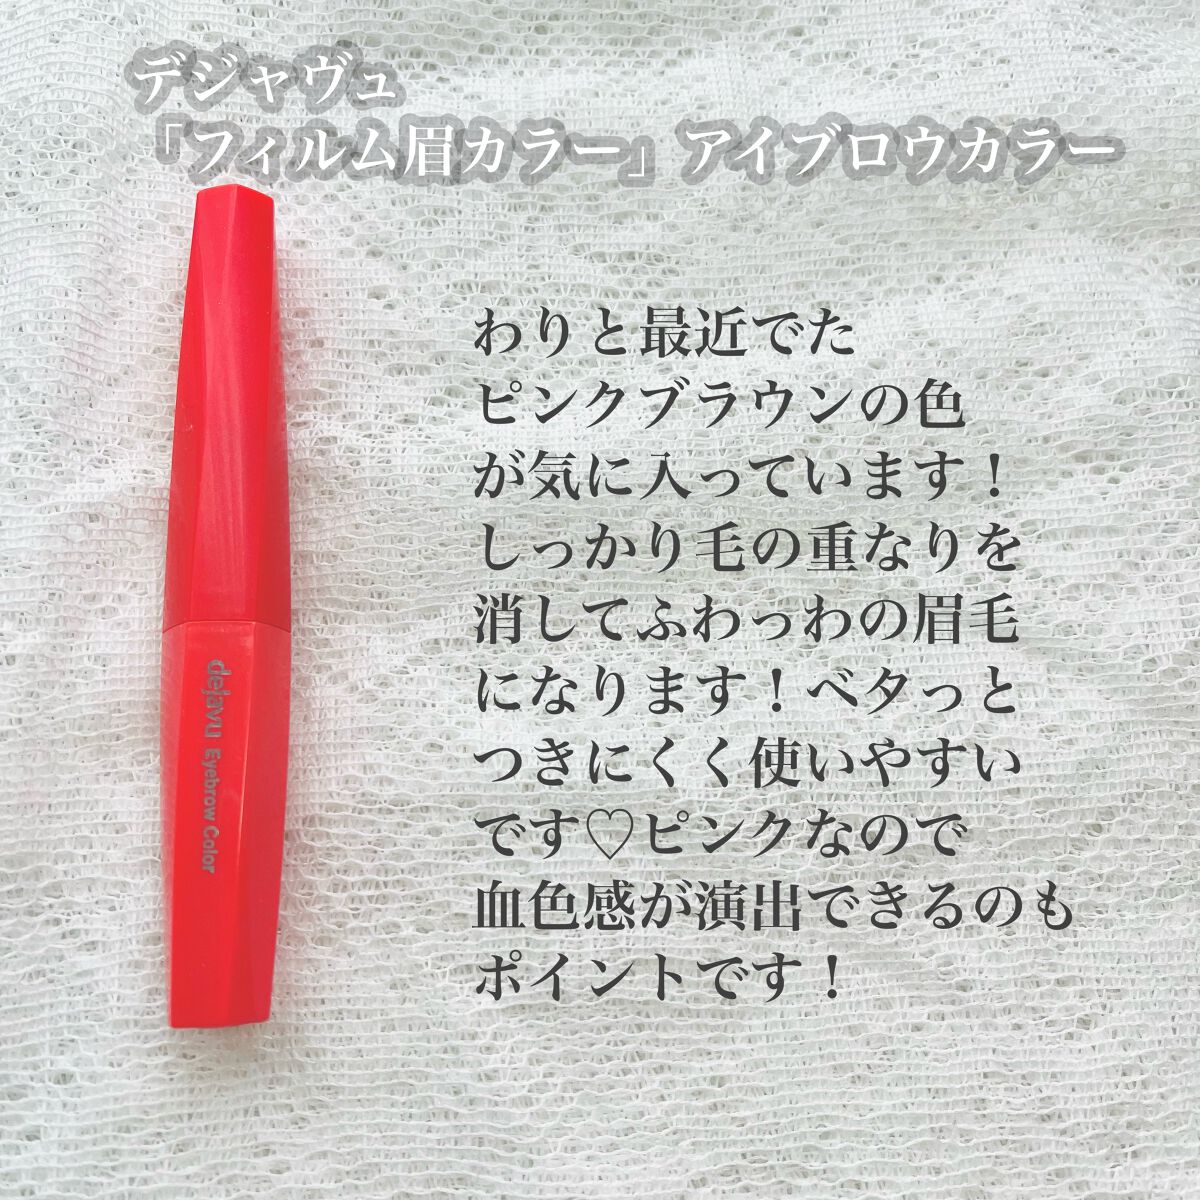 デジャヴュ
「フィルム眉カラー」アイブロウカラー
わりと最近でた
ピンクブラウンの色
が気に入っています！
しっかり毛の重なりを
消してふわっわの眉毛
になります！ベタっと
つきにくく使いやすい
です♡ピンクなので
血色感が演出できるのも
ポイントです！
dejavu Eyebrow Color